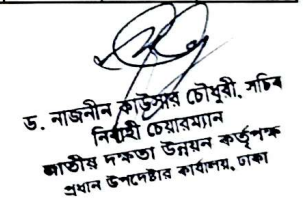 ড. নাজনীন কাউসার চৌধুরী, সচিব
নির্বাহী চেয়ারম্যান
জাতীয় দক্ষতা উন্নয়ন কর্তৃপক্ষ
প্রধান উপদেষ্টার কার্যালয়, ঢাকা